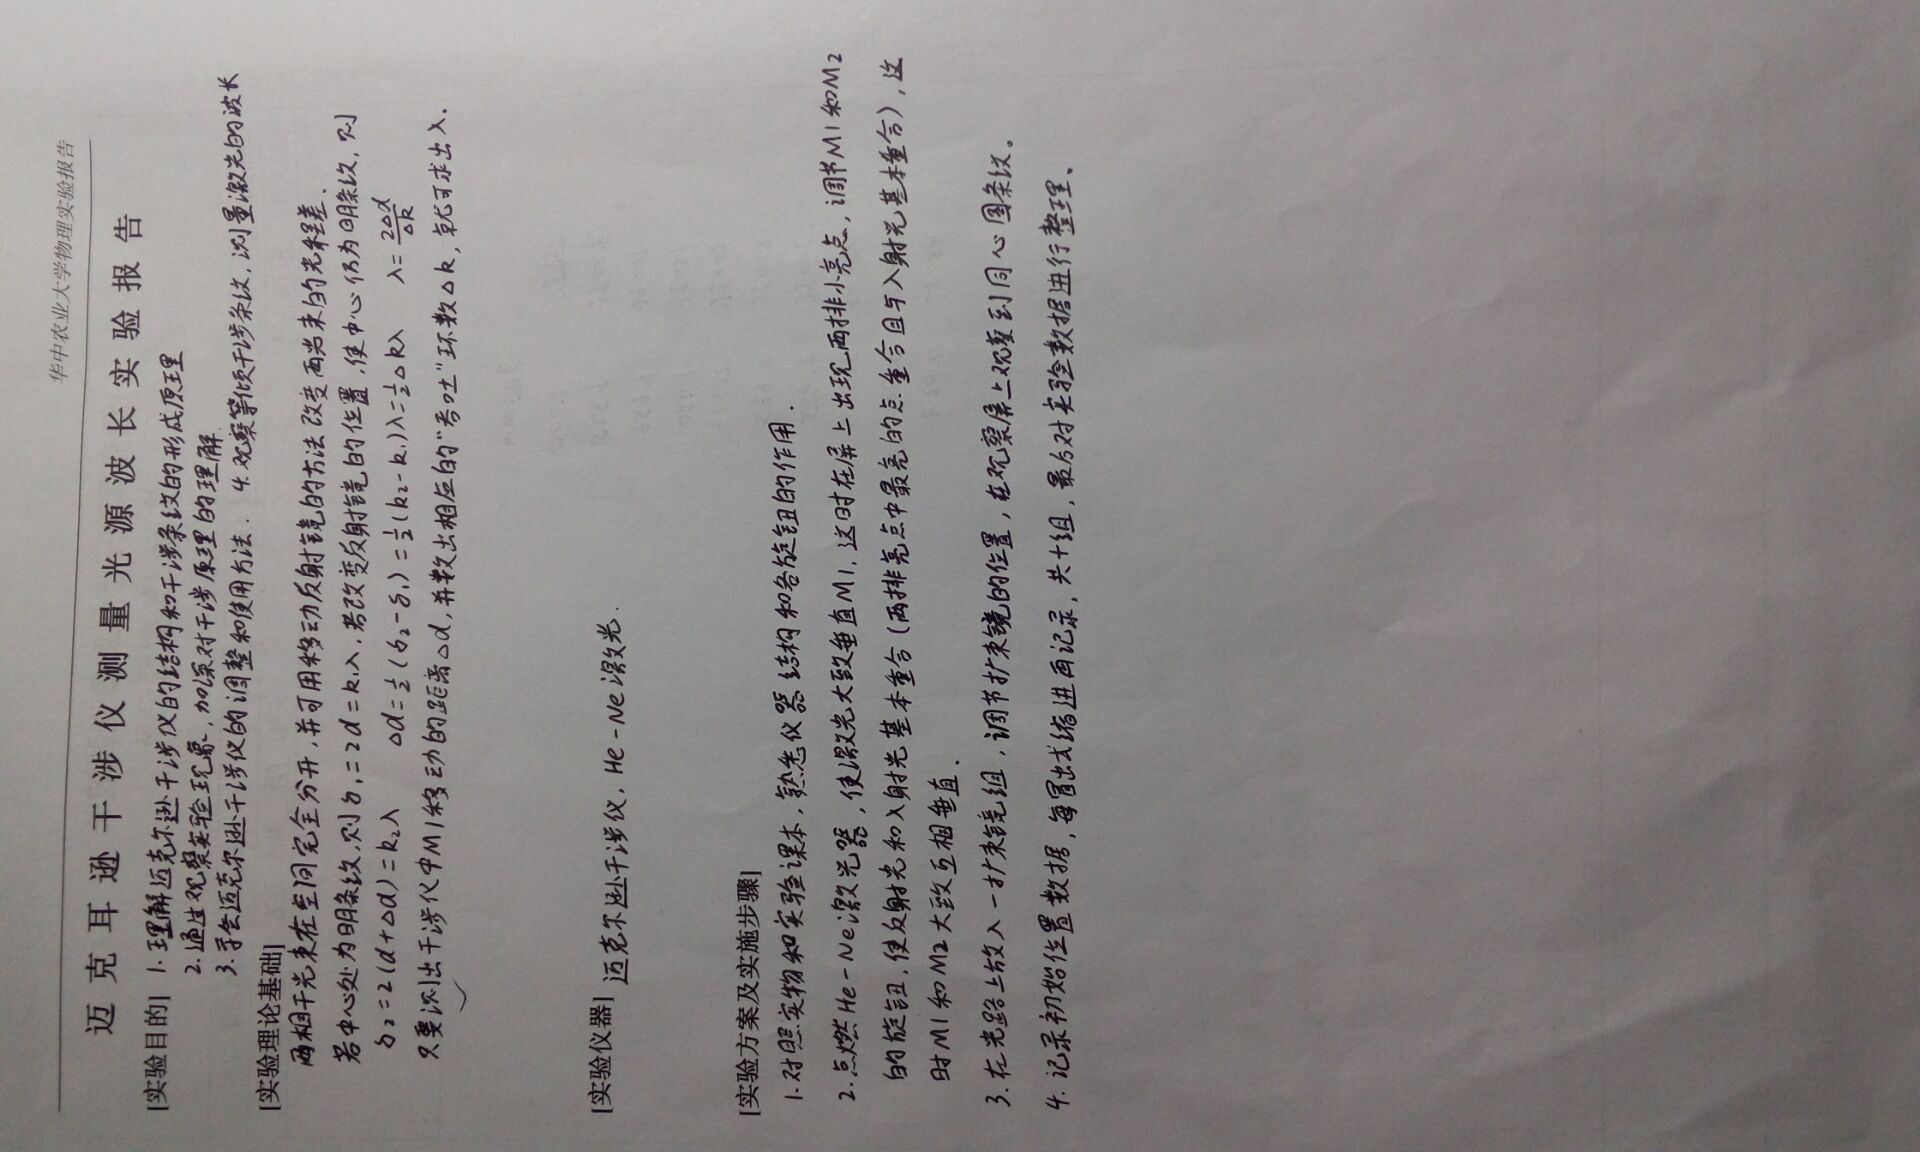 华中农业大学物理实验报告
迈克耳逊干涉仪测量光源波长实验报告
[实验目的] 1.理解迈克尔逊干涉仪的结构和干涉条纹的形成原理
2.通过观察实验现象,加深对干涉原理的理解.
3.学会迈克尔逊干涉仪的调整和使用方法. 4.观察等倾干涉条纹,测量激光的波长
[实验理论基础]
两相干光束在空间完全分开,并可用移动反射镜的方法改变两光束的光程差.
若中心处为明条纹,则δ₁=2d=k₁λ,若改变反射镜的位置,使中心仍为明条纹,则
δ₂=2(d+Δd)=k₂λ Δd=½(δ₂-δ₁)=½(k₂-k₁)λ=½Δkλ λ=2Δd/Δk
只要测出干涉仪中M1移动的距离Δd,并数出相应的"吞吐"环数Δk,就可求出λ.
[实验仪器] 迈克尔逊干涉仪,He-Ne激光.
[实验方案及实施步骤]
1.对照实物和实验课本,熟悉仪器结构和各旋钮的作用.
2.点燃He-Ne激光器,使激光大致垂直M1,这时在屏上出现两排小亮点,调节M1和M2
的旋钮,使反射光和入射光基本重合(两排亮点中最亮的点重合且与入射光基本重合),这
时M1和M2大致互相垂直.
3.在光路上放入一扩束镜组,调节扩束镜的位置,在观察屏上观察到同心圆条纹。
4.记录初始位置数据,每冒出或缩进再记录,共十组,最后对实验数据进行整理。